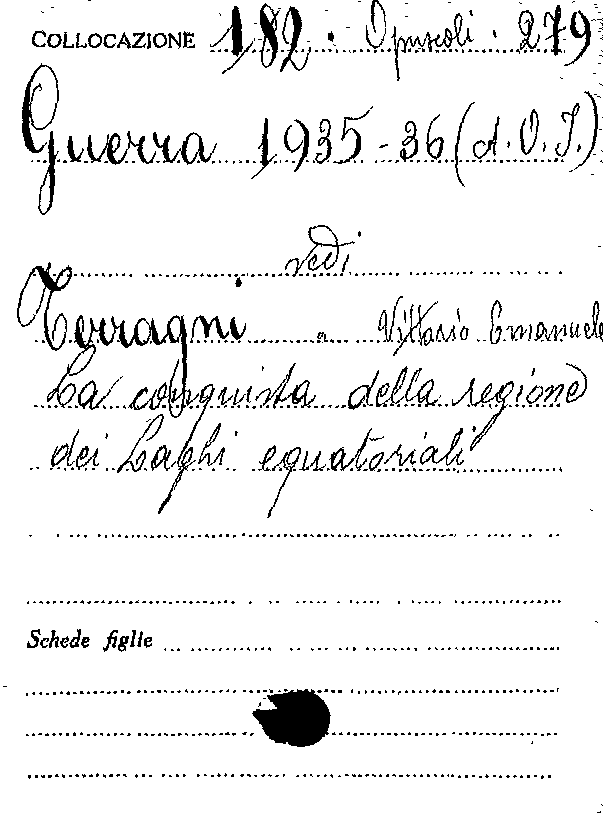 COLLOCAZIONE 182. Opuscoli. 279
Guerra 1935-36 (A.O.I.)
vedi
Terragni Vittorio Emanuele
La conquista della regione
dei Laghi equatoriali
Schede figlie